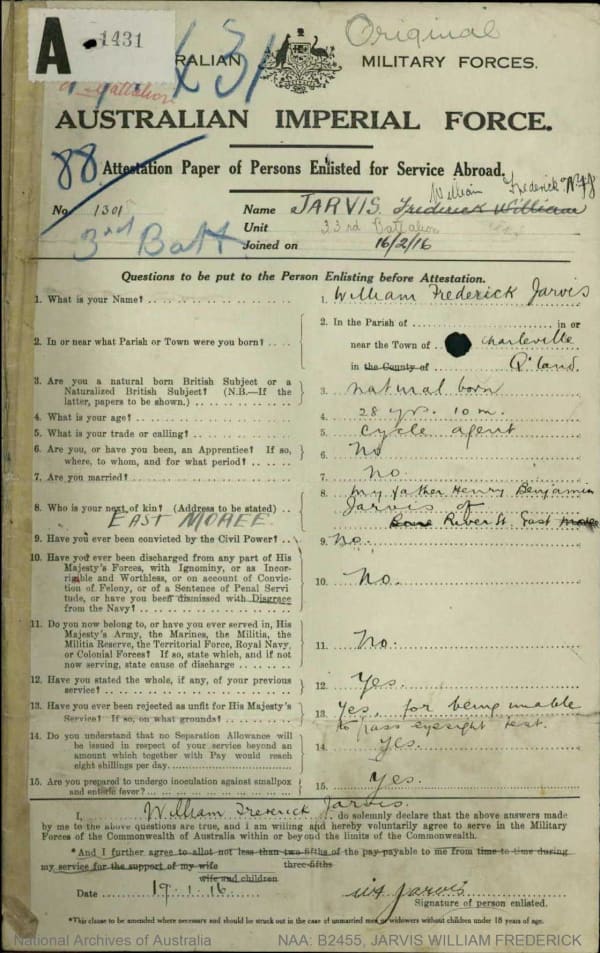 A 1431
Original
RALIAN MILITARY FORCES.
431
Battalion
AUSTRALIAN IMPERIAL FORCE.
88
Attestation Paper of Persons Enlisted for Service Abroad.
William Frederick
No. 1301 Name JARVIS. Frederick William
3rd Batt. Unit 33rd Battalion
Joined on 16/2/16
Questions to be put to the Person Enlisting before Attestation.
1. What is your Name? 1. William Frederick Jarvis
2. In the Parish of in or
2. In or near what Parish or Town were you born? near the Town of Charleville
in the County of Q'land.
3. Are you a natural born British Subject or a
Naturalized British Subject? (N.B.—If the 3. natural born
latter, papers to be shown.)
4. What is your age? 4. 28 yrs. 10 m.
5. What is your trade or calling? 5. Cycle agent
6. Are you, or have you been, an Apprentice? If so, 6. No
where, to whom, and for what period?
7. Are you married? 7. No.
8. My father Henry Benjamin
8. Who is your next of kin? (Address to be stated) Jarvis of
EAST MOREE River St. East Moree
9. Have you ever been convicted by the Civil Power? 9. No.
10. Have you ever been discharged from any part of His
Majesty's Forces, with Ignominy, or as Incor-
rigible and Worthless, or on account of Convic-
tion of Felony, or of a Sentence of Penal Servi 10. No.
tude, or have you been dismissed with Disgrace
from the Navy?
11. Do you now belong to, or have you ever served in, His
Majesty's Army, the Marines, the Militia, the
Militia Reserve, the Territorial Force, Royal Navy, 11. No.
or Colonial Forces? If so, state which, and if not
now serving, state cause of discharge
12. Have you stated the whole, if any, of your previous
service? 12. Yes.
13. Have you ever been rejected as unfit for His Majesty's 13. Yes, for being unable
Service? If so, on what grounds? to pass eyesight test.
14. Do you understand that no Separation Allowance will
be issued in respect of your service beyond an 14. Yes.
amount which together with Pay would reach
eight shillings per day.
15. Are you prepared to undergo inoculation against smallpox 15. Yes.
and enteric fever?
I, William Frederick Jarvis. do solemnly declare that the above answers made
by me to the above questions are true, and I am willing and hereby voluntarily agree to serve in the Military
Forces of the Commonwealth of Australia within or beyond the limits of the Commonwealth.
*And I further agree to allot not less than two-fifths of the pay payable to me from time to time during
my service for the support of my wife three-fifths
wife and children
Date 19.1.16. W F Jarvis
Signature of person enlisted.
*This clause to be amended where necessary and should be struck out in the case of unmarried men or widowers without children under 18 years of age.
National Archives of Australia NAA: B2455, JARVIS WILLIAM FREDERICK